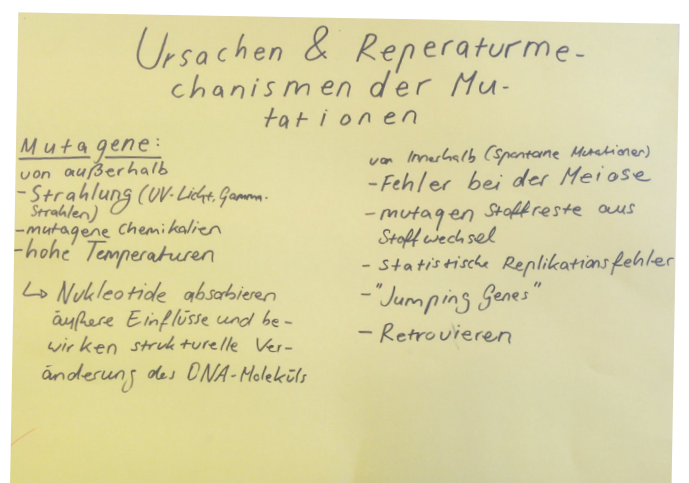 Ursachen & Reperaturme-
chanismen der Mu-
tationen
Mutagene:
von außerhalb
- Strahlung (UV-Licht, Gamm.
Strahlen)
- mutagene Chemikalien
- hohe Temperaturen
↳ Nukleotide absorbieren
äußere Einflüsse und be-
wirken strukturelle Ver-
änderung des DNA-Moleküls
von Innerhalb (Spontane Mutationen)
- Fehler bei der Meiose
- mutagen Stoffreste aus
Stoffwechsel
- statistische Replikationsfehler
- "Jumping Genes"
- Retrovieren